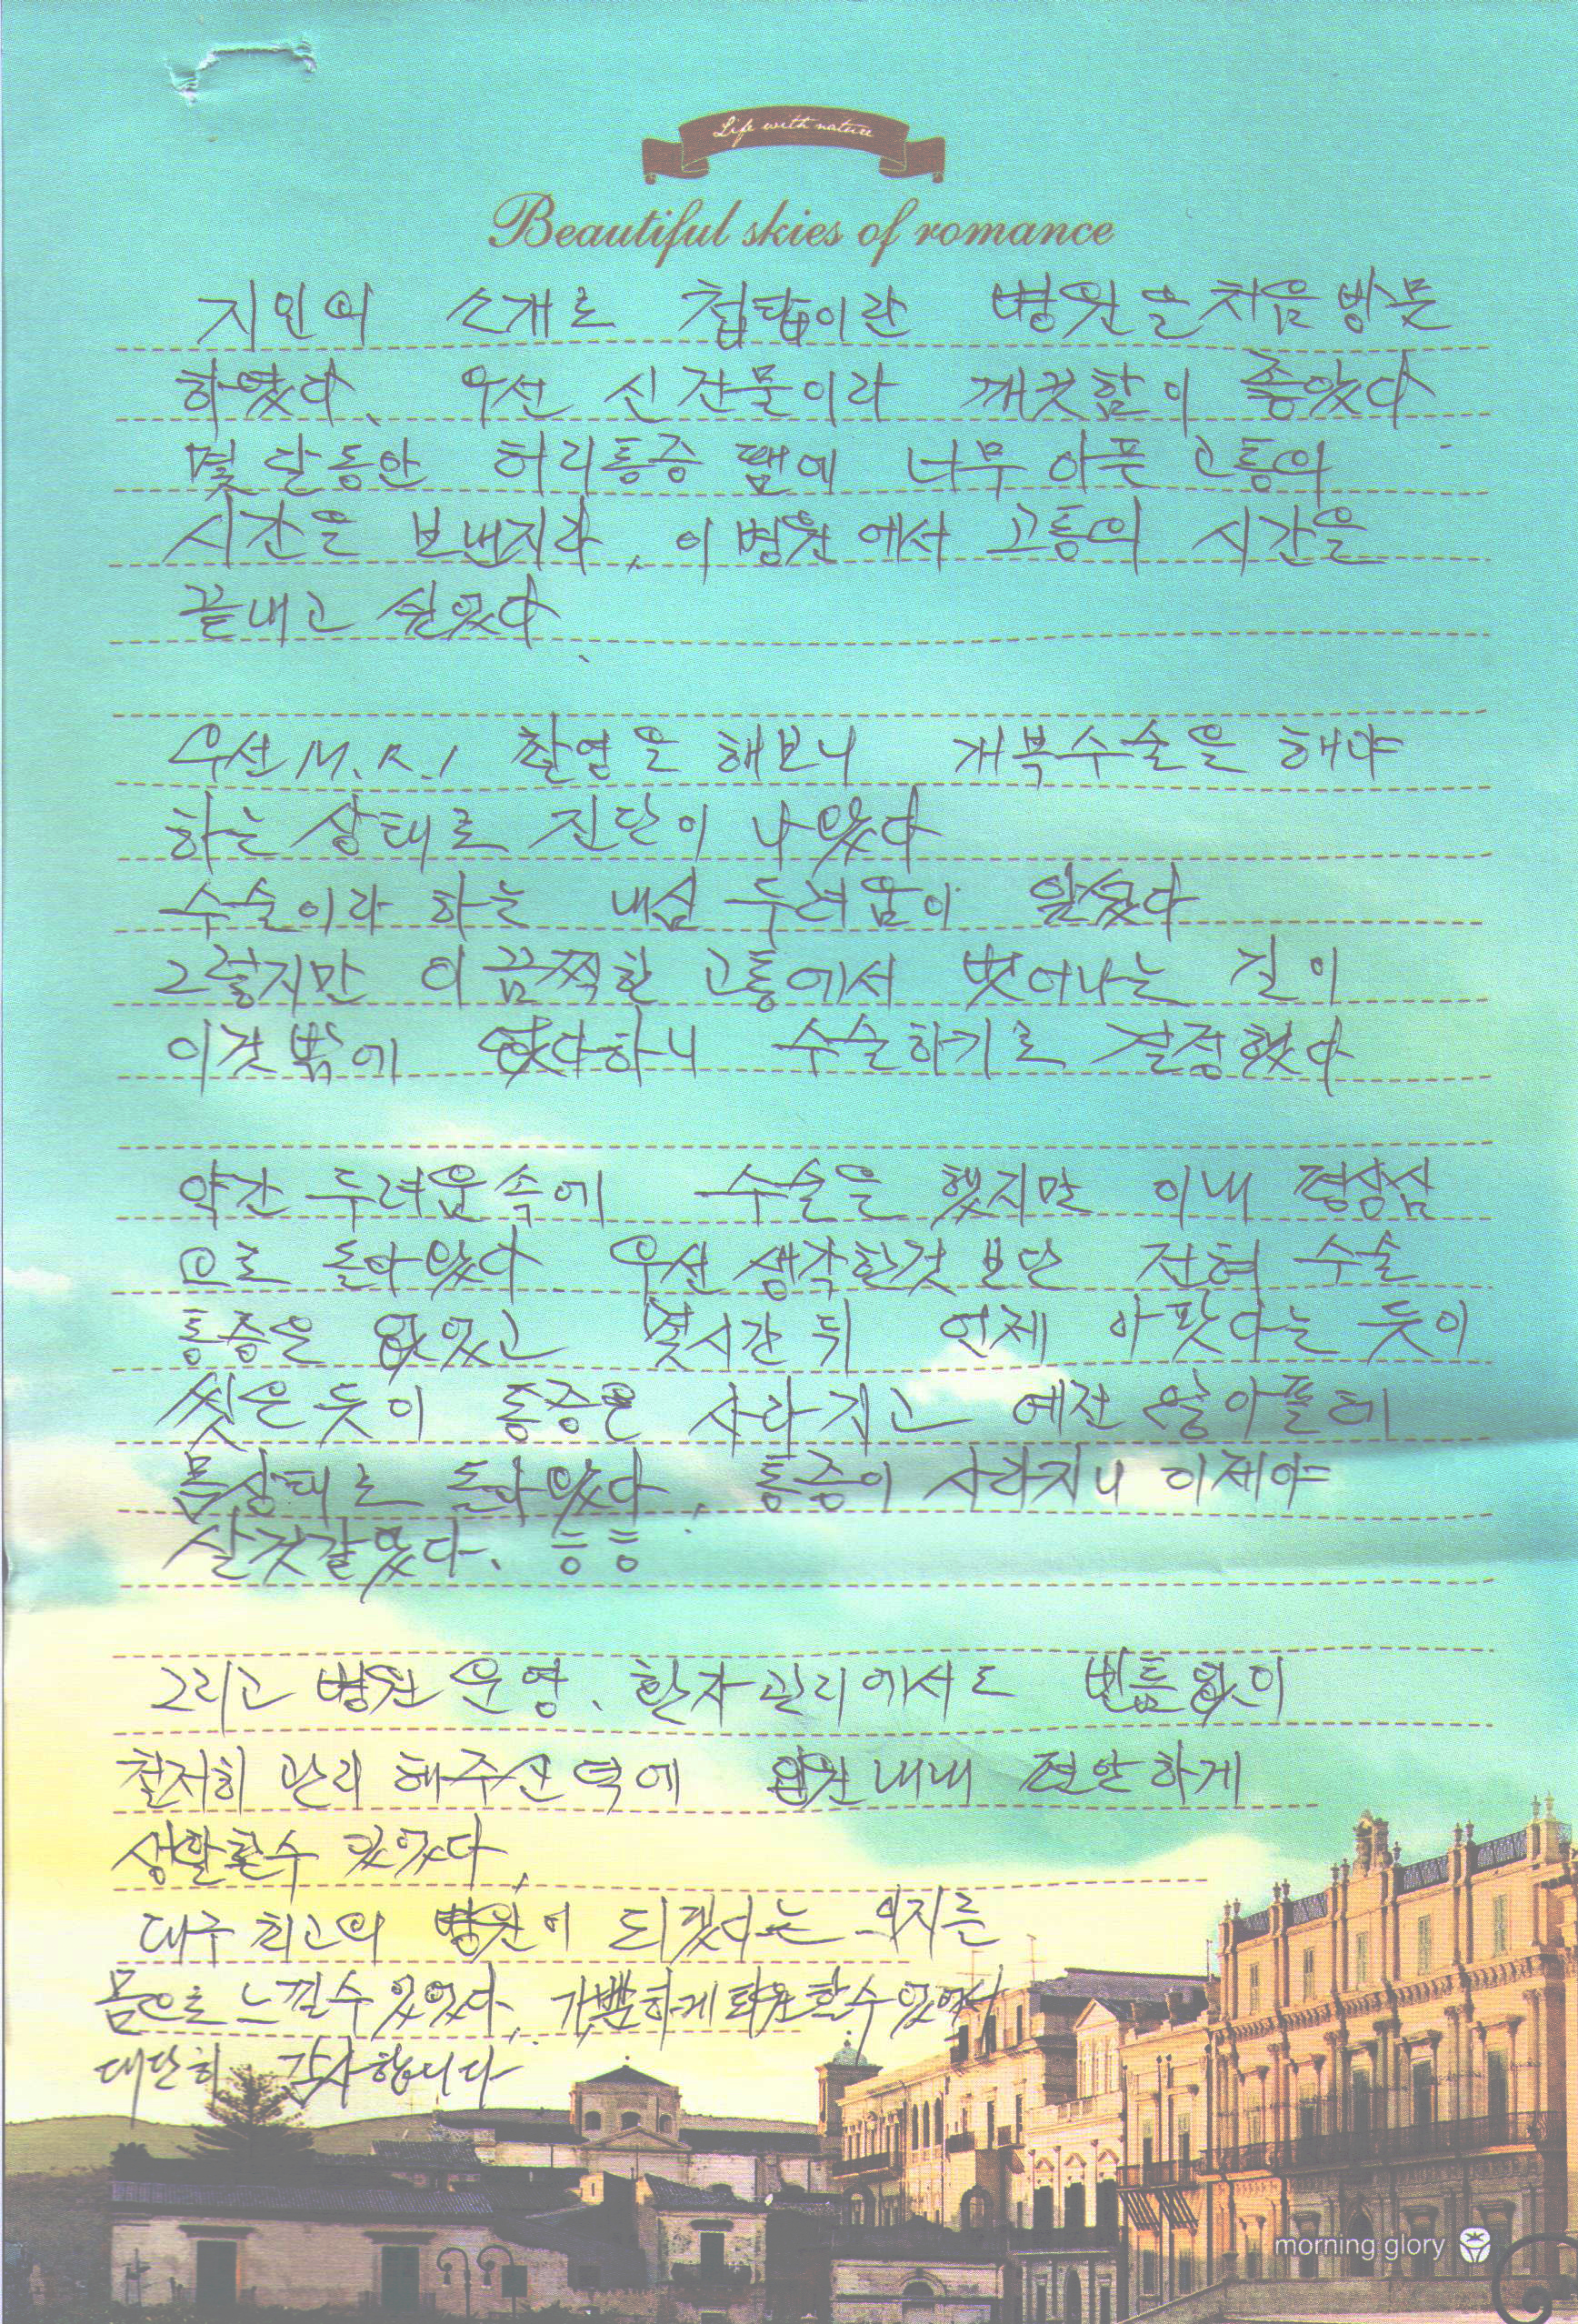 Life with nature
Beautiful skies of romance
지인의 소개로 첩탑이란 병원을 처음 방문
하였다. 우선 신건물이라 깨끗함이 좋았다
몇 달동안 허리통증 땜에 너무 아픈 고통의
시간을 보낸지라, 이 병원에서 고통의 시간을
끝내고 싶었다.
우선 M.R.I 촬영을 해보니 개복수술을 해야
하는 상태로 진단이 나왔다
수술이라 하는 내심 두려움이 앞섰다
그렇지만 이 끔찍한 고통에서 벗어나는 길이
이것밖에 없다하니 수술하기로 결정했다
약간 두려움속에 수술을 했지만 이내 평상심
으로 돌아왔다. 우선 생각한것 보단 전혀 수술
통증은 없었고 몇시간 뒤 언제 아팟다는 듯이
씻은듯이 통증은 사라지고 예전 않아플때
몸상태로 돌아왔다. 통증이 사라지니 이제야
살것같았다. ㅎㅎ
그리고 병원 운영. 환자관리에서도 빈틈없이
철저히 관리 해주신 덕에 입원내내 편안하게
생활할수 있었다.
대구 최고의 병원이 되겠다는 의지를
몸으로 느낄수 있었다. 가뿐하게 퇴원할수있어서
대단히 감사합니다
morning glory